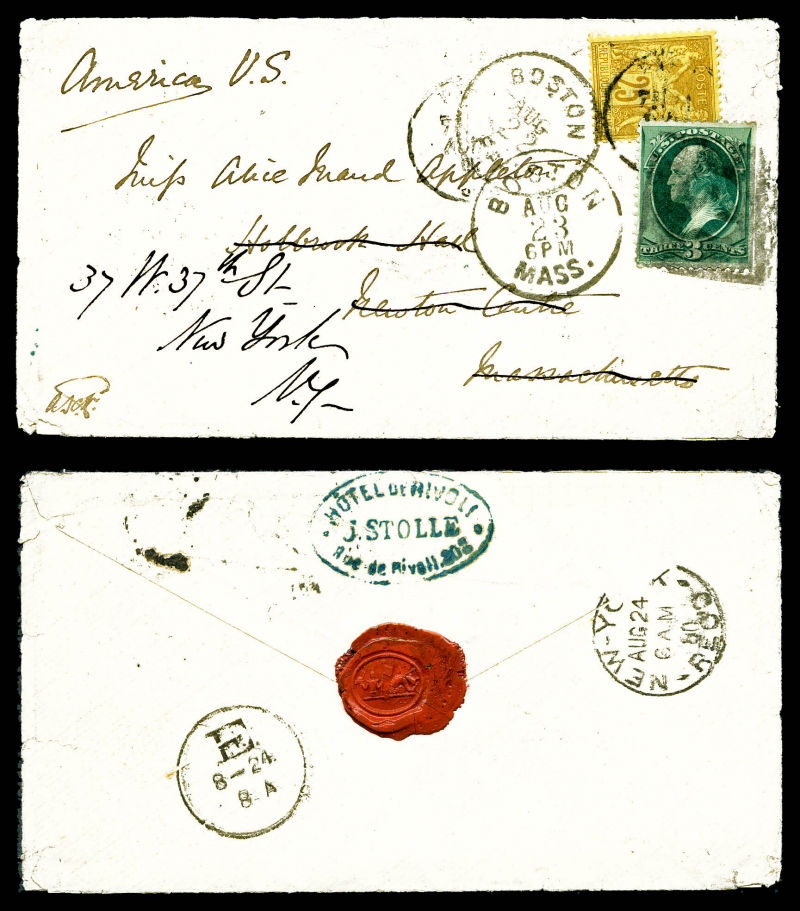 America U.S.
POSTE
25
U.S. POSTAGE
THREE 3 CENTS
BOSTON
AUG
BOSTON
AUG
23
6 PM
MASS.
Miss Alice Maud Appleton
Holbrook Hall
37 W. 37th St
Newton Centre
New York
Massachusetts
N.Y.
HÔTEL DE RIVOLI
J. STOLLE
Rue de Rivoli, 202
NEW-YO
AUG 24
6 AM
80
REC'D
E
8-24
8 A